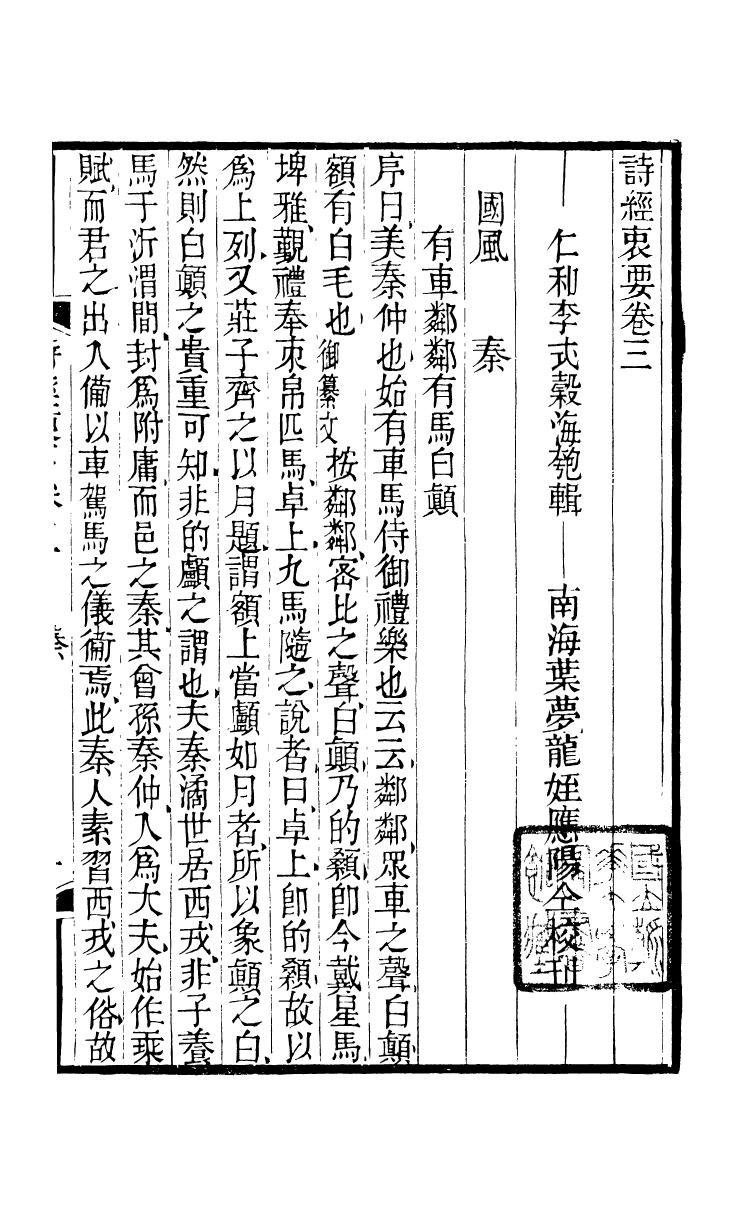 詩經衷要卷三
仁和李式穀海匏輯 南海葉夢龍姪應陽仝校刊
國風 秦
有車鄰鄰有馬白顚
序曰美秦仲也始有車馬侍御禮樂也云云鄰鄰眾車之聲白顚
額有白毛也御纂文按鄰鄰密比之聲白顚乃的顙卽今戴星馬
埤雅覲禮奉束帛匹馬卓上九馬隨之說者曰卓上卽的顙故以
爲上列又莊子齊之以月題謂額上當顱如月者所以象顚之白
然則白顚之貴重可知非的顱之謂也夫秦潏世居西戎非子養
馬于汧渭間封爲附庸而邑之秦其曾孫秦仲入爲大夫始作乘
賦而君之出入備以車駕馬之儀衞焉此秦人素習西戎之俗故